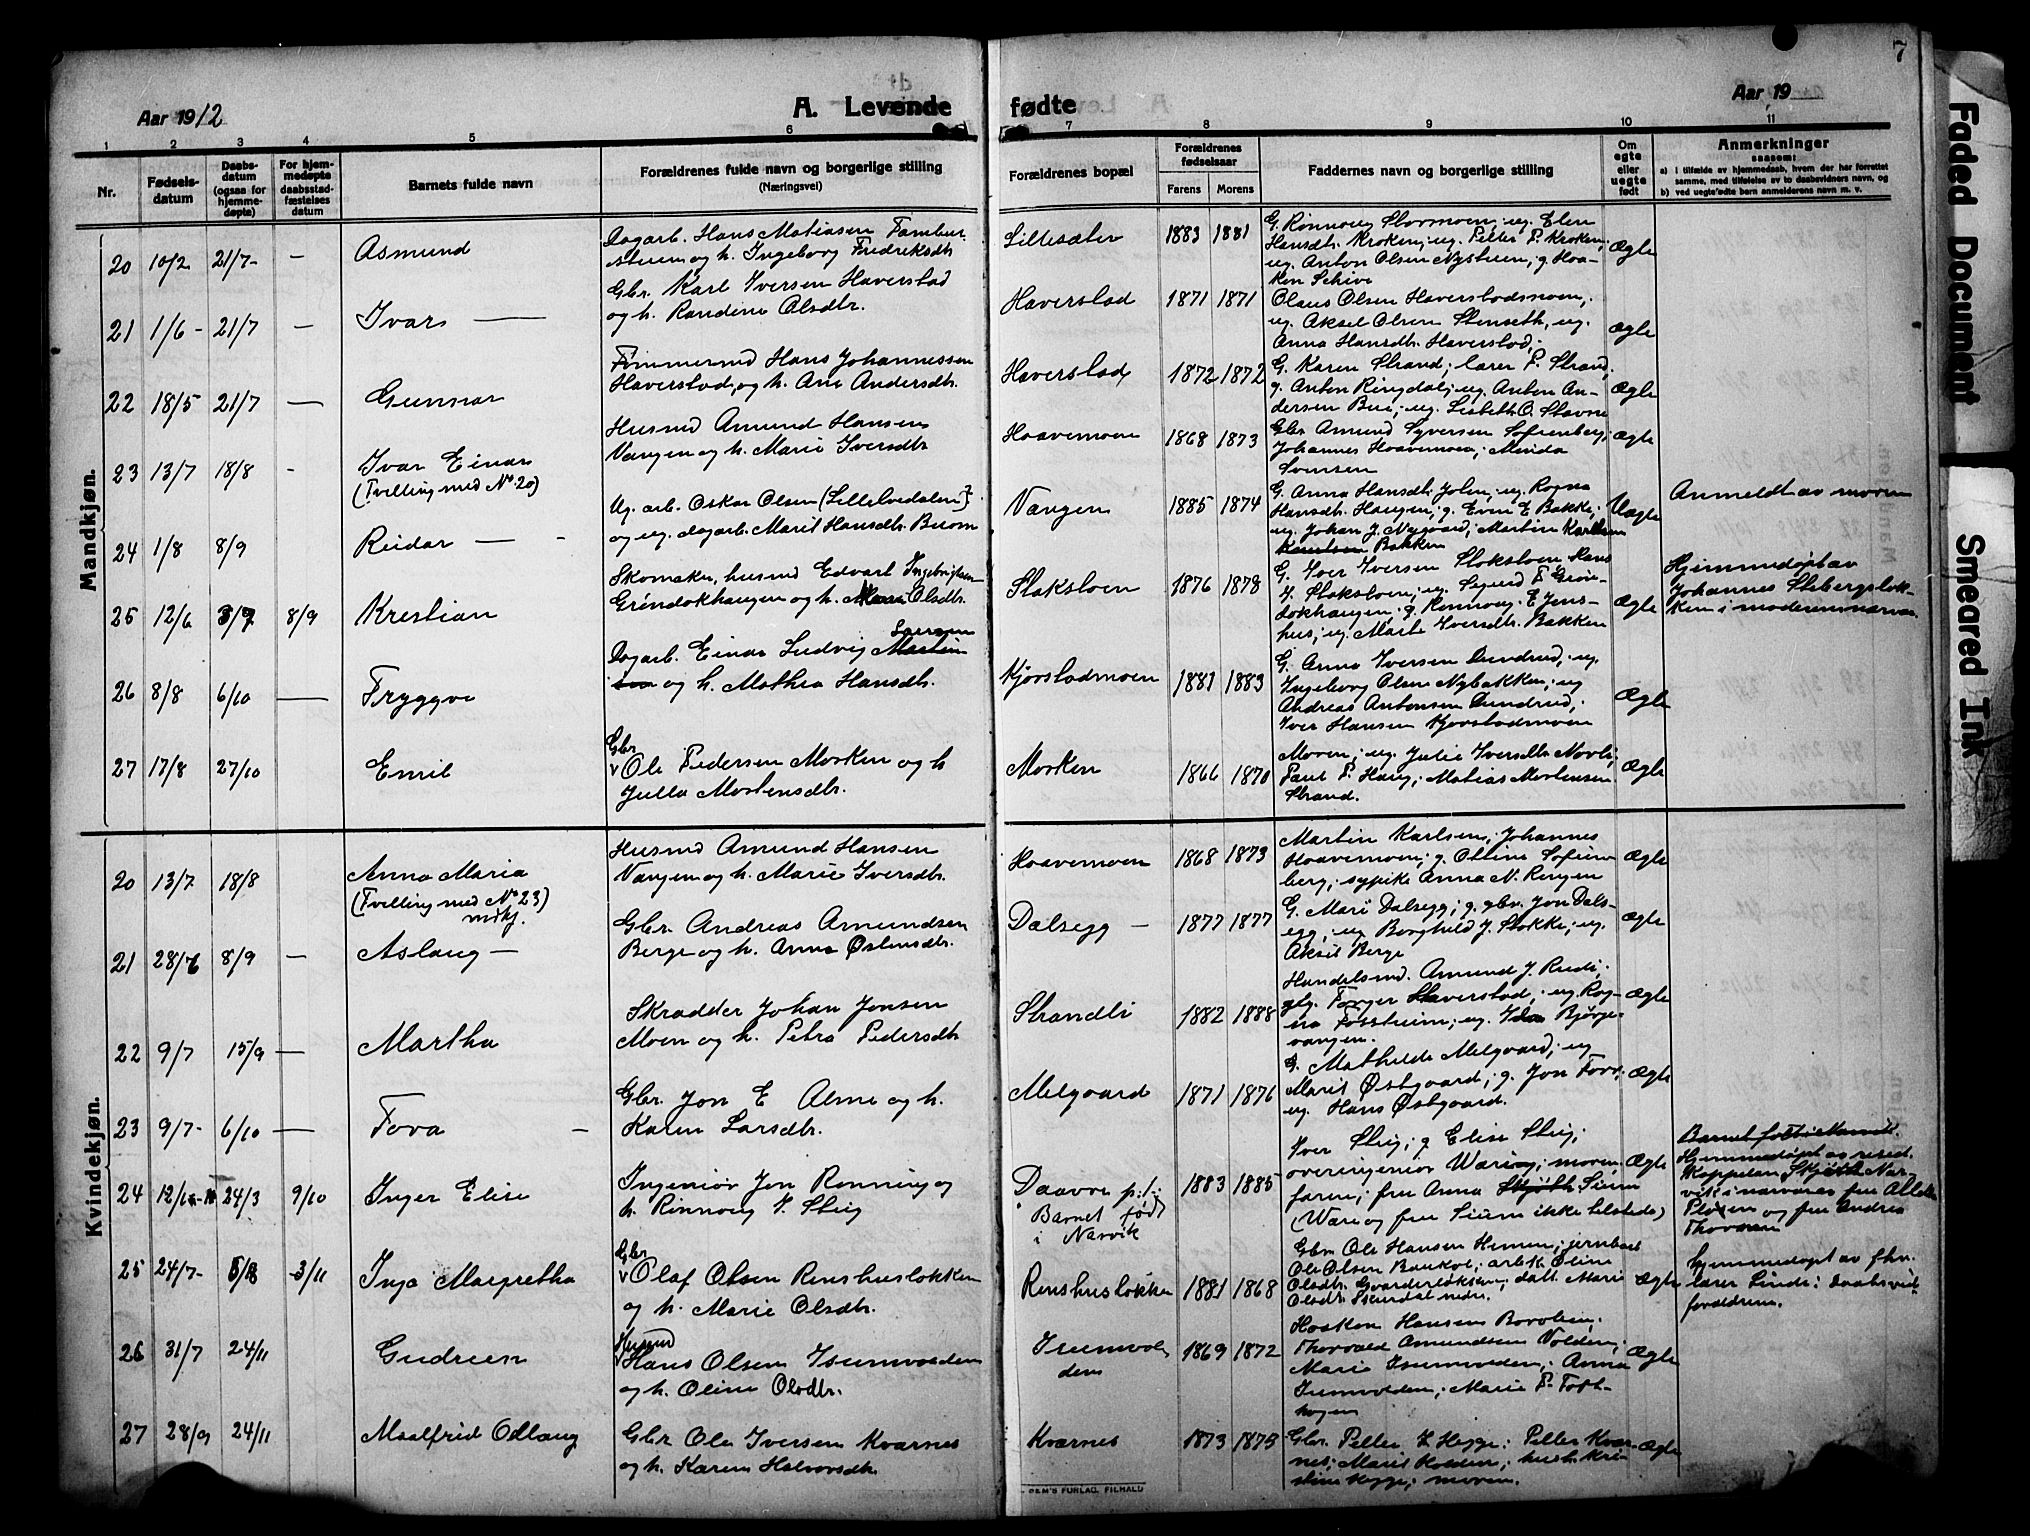 7
Aar 1912
A. Levende fødte
Aar 19
1 2 3 4 5 6 7 8 9 10 11
Nr.
Fødsels-
datum
Daabs-
datum
(ogsaa for
hjemme-
døpte)
For hjem-
medøpte
daabsstad-
fæstelses
datum
Barnets fulde navn
Forældrenes fulde navn og borgerlige stilling
(Næringsvei)
Forældrenes bopæl
Forældrenes
fødselsaar
Farens Morens
Faddernes navn og borgerlige stilling
Om
egte
eller
uegte
født
Anmerkninger
saasom:
a) i tilfælde av hjemmedaab, hvem der har forrettet
samme, med tilføielse av to daabsvidners navn, og
b) ved uegtefødte børn anmelderens navn m. v.
Mandkjøn.
20 10/2 21/7 — Asmund
Dagarb. Hans Matiasen
og h. Ingeborg Fredriksdtr.
Lillesæter 1883 1881
G. Rønnoug Stormoen; ug. Elen
Hansdtr. Kroken; ug. Petter P. Kroken;
ug. Anton Olsen Nystuen; g. Haa-
ken Schive
Ægte
21 1/6 21/7 — Ivar
Gbr. Karl Iversen Haverstad
og h. Randine Olsdtr.
Haverstad 1871 1871
Olaus Olsen Haverstadmoen;
ug. Aksel Olsen Stenseth, ug.
Anna Hansdtr. Haverstad;
Ægte
22 18/5 21/7 — Gunnar
Tømmermd Hans Johannessen
Haverstad, og h. Ane Andersdtr.
Haverstad 1872 1872
G. Karen Strand; lærer P. Strand;
g. Anton Ringdal; ug. Anton An-
dersen Bue; ug. Lisbeth O. Stavne
Ægte
23 13/7 18/8 - Ivar Einar
(Tvilling med No. 20)
Husmd Amund Hansen
Vangen og h. Marie Iversdtr.
Haavemoen 1868 1873
Gbr. Amund Syversen Sofienberg;
Johannes Haavemoen; Minda
Svensen
Ægte
24 1/8 8/9 Reidar —
Ug. arb. Oskar Olsen (Lillehvedalen)
og ug. dagarb. Marit Hansdtr. Buom
Vangen 1885 1874
G. Anna Hansdtr. Jolen; ug. Ragna
Hansdtr. Haugen; g. Even E. Bakke;
ug. Johan J. Nygaard; Martin Karlsen
Knutsen Bakken
Uægte
Anmeldt av moren
25 12/6 3/7 8/9 Kristian
Skomaker, husmd Edvart Ingebrigtsen
Grindokhaugen og h. Olsdtr.
Stokstoen 1876 1878
G. Iver Iversen Stokstoen, Hans
I. Stokstoen; ug. Sigurd T. Grin-
dokhaugen; g. Rønnoug E. Jens-
hus; ug. Marte Iversdtr. Bakken
Ægte
Hjemmedøpt av
Johannes Stebergsløk-
ken i moderens nærvær
26 8/8 6/10 — Tryggve
Larsen
Dagarb. Einar Ludvig Martin
og h. Mathea Hansdtr.
Kjørstadmoen 1881 1883
G. Anna Iversen Dundrud; ug.
Ingeborg Olsen Nybakken; ug
Andreas Antonsen Dundrud;
Iver Hansen Kjørstadmoen
Ægte
27 17/8 27/10 Emil
Gbr
Ole Pedersen Morken og h
Julla Mortensdtr.
Morken 1866 1870
Moren; ug. Julie Iversdtr. Norli;
Paul P. Haug; Matias Mortensen
Strand.
Ægte
Kvindekjøn.
20 13/7 18/8 Anna Maria
(Tvilling med No 23)
mdkj.
Husmd Amund Hansen
Vangen og h. Marie Iversdtr.
Haavemoen 1868 1873
Martin Karlsen; Johannes
Haavemoen; g. Ottine Sofien-
berg; sypike Anna N. Ringen
Ægte
21 28/7 8/9 — Aslaug —
Gbr. Andreas Amundsen
Berge og h. Anna Østensdtr.
Dalsegg — 1877 1877
G. Mari Dalsegg; g. gbr. Jon Dals-
egg, ug Borghild J. Stokke; ug.
Aksel Berge
Ægte
22 9/7 15/9 — Martha
Skrædder Johan Jonsen
Moen og h. Petra Pedersdtr.
Strandli 1882 1888
Handelsmd. Amund J. Rudi;
Torger Haverstad; ug. Rag-
na Fossheim; ug. Ida Bjørge-
vangen.
Ægte
23 9/7 6/10 — Tova
Gbr. Jon E Alme og h.
Karen Larsdtr.
Melgaard 1871 1876
G. Mathilde Melgaard; ug
Marit Østgaard; g. Jon Forr;
ug. Hans Østgaard.
Ægte
24 24/3 9/10 Inger Elise
Ingeniør Jon Rønning og
h. Rønnoug I. Stig
Daavre p.t.
Barnet født
i Narvik
1883 1885
Iver Stig; g Elise Stig;
overingeniør Waring; moren,
faren; fru Anna Skjøth Sieim
(Ware og fru Sieim ikke tilstede)
Ægte
Barnet født i Narvik.
Hjemmedøpt av resid.
kappelan Skjøth Nar-
vik i nærvær av fru
og fru Andrea
Thorsen
25 24/7 5/8 3/11 Inga Margretha
Gbr
Olaf Olsen Renshusløkken
og h. Marie Olsdtr.
Renshusløkken 1881 1868
Gbr. Ole Hansen Hemen; jernbarb
Ole Olsen Baukol; arbk. Oline
Olsdtr. Gvarderløkken; datt. Marie
Olsdtr. Skurdal nedre.
Ægte
Hjemmedøpt av fhv.
lærer Linde; daabsvid.
forældrene.
26 31/7 24/11 Gudrun
Husmd
Hans Olsen Isumvolden
og h. Oline Olsdtr.
Isumvol-
den
1869 1872
Haaken Hansen Borolien;
Thorvald Amundsen Volden;
Marie Isumvolden; Anna
Isumvolden; Marie P. Toft-
hagen
Ægte
27 28/9 24/11 Maalfrid Odlaug
Gbr Ole Iversen Kvarnes
og h. Karen Halvorsdtr.
Kvarnes 1873 1875
Gbr. Petter H Hegge; Petter Kvar-
nes; Marit Holden; hush. Kri-
stine Hegge; moren.
Ægte
FORLAG, FILHALD
Faded Document
Smeared Ink